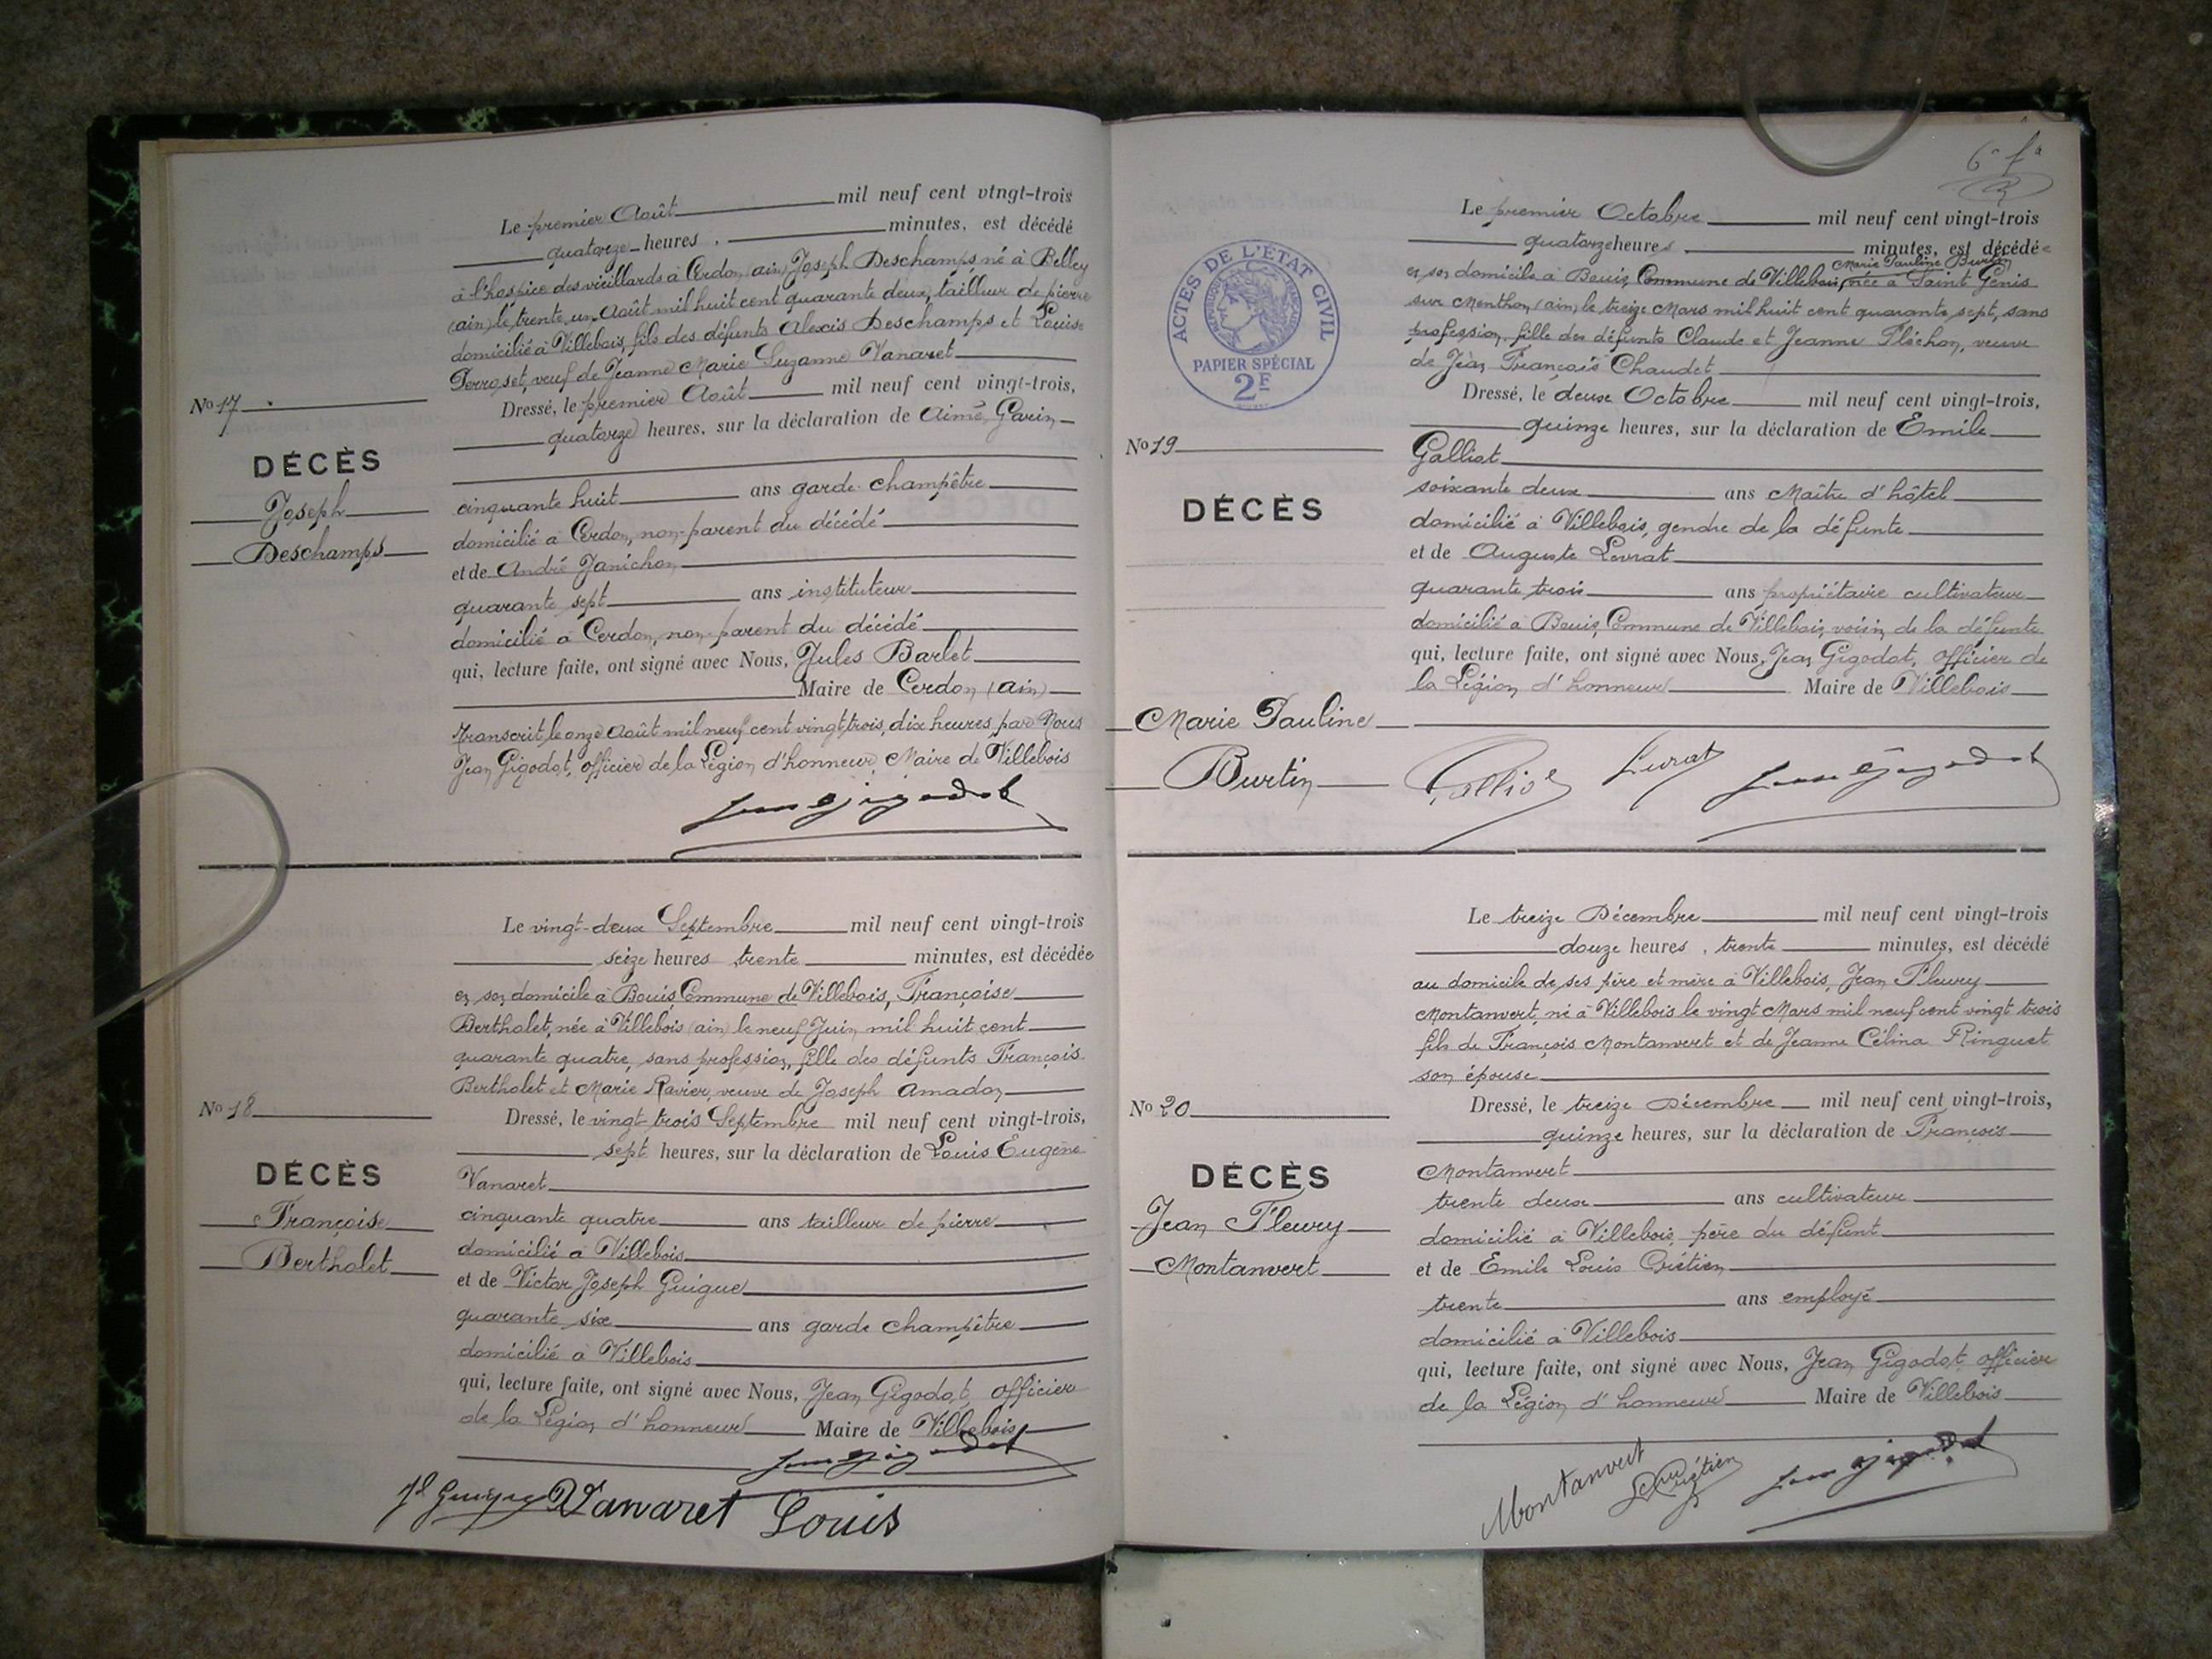 Le premier Août mil neuf cent vingt-trois
quatorze heures, minutes, est décédé
à l'hospice des vieillards à Cerdon (ain) Joseph Deschamps, né à Belley
(ain) le trente un Août mil huit cent quarante deux, tailleur de pierre
domicilié à Villebois, fils des défunts Alexis Deschamps et Louise
Perroset, veuf de Jeanne Marie Suzanne Vanaret
No 17
Dressé, le premier Août mil neuf cent vingt-trois,
quatorze heures, sur la déclaration de Aimé Garin
DÉCÈS
Joseph
Deschamps
cinquante huit ans garde champêtre
domicilié à Cerdon, non-parent du décédé
et de André Janichon
quarante sept ans instituteur
domicilié à Cerdon, non-parent du décédé
qui, lecture faite, ont signé avec Nous, Jules Barlet
Maire de Cerdon (ain)
Transcrit le onze Août mil neuf cent vingt trois, dix heures, par Nous
Jean Gigodot, officier de la Légion d'honneur, Maire de Villebois
Jean Gigodot
Le vingt-deux Septembre mil neuf cent vingt-trois
seize heures trente minutes, est décédée
en son domicile à Bouis, Commune de Villebois, Françoise
Bertholet, née à Villebois (ain) le neuf Juin mil huit cent
quarante quatre, sans profession, fille des défunts François
Bertholet et Marie Ravier, veuve de Joseph Amadon
No 18
Dressé, le vingt trois Septembre mil neuf cent vingt-trois,
sept heures, sur la déclaration de Louis Eugène
DÉCÈS
Françoise
Bertholet
Vanaret
cinquante quatre ans tailleur de pierre
domicilié à Villebois
et de Victor Joseph Guigue
quarante six ans garde champêtre
domicilié à Villebois
qui, lecture faite, ont signé avec Nous, Jean Gigodot, officier
de la Légion d'honneur Maire de Villebois
Jean Gigodot
Guigue Vanaret Louis
ACTES DE L'ÉTAT CIVIL
RÉPUBLIQUE FRANÇAISE
PAPIER SPÉCIAL
2F
Le premier Octobre mil neuf cent vingt-trois
quatorze heures minutes, est décédée
Marie Pauline Burtin
en son domicile à Bouis, Commune de Villebois, née à Saint Genis
sur Menthon (ain) le treize Mars mil huit cent quarante sept, sans
profession, fille des défunts Claude et Jeanne Pléchon, veuve
de Jean François Chaudet
Dressé, le deux Octobre mil neuf cent vingt-trois,
quinze heures, sur la déclaration de Emile
No 19
DÉCÈS
Galliot
soixante deux ans Maître d'hôtel
domicilié à Villebois, gendre de la défunte
et de Auguste Levrat
quarante trois ans propriétaire cultivateur
domicilié à Bouis, Commune de Villebois, voisin de la défunte
qui, lecture faite, ont signé avec Nous, Jean Gigodot, officier de
la Légion d'honneur Maire de Villebois
Marie Pauline
Burtin
Galliot Levrat Jean Gigodot
Le treize Décembre mil neuf cent vingt-trois
douze heures, trente minutes, est décédé
au domicile de ses père et mère à Villebois, Jean Fleury
Montanvert, né à Villebois le vingt Mars mil neuf cent vingt trois
fils de François Montanvert et de Jeanne Célina Ringuet
son épouse
No 20
Dressé, le treize Décembre mil neuf cent vingt-trois,
quinze heures, sur la déclaration de François
DÉCÈS
Jean Fleury
Montanvert
Montanvert
trente deux ans cultivateur
domicilié à Villebois, père du défunt
et de Emile Louis Crétien
trente ans employé
domicilié à Villebois
qui, lecture faite, ont signé avec Nous, Jean Gigodot, officier
de la Légion d'honneur Maire de Villebois
Montanvert Crétien Jean Gigodot